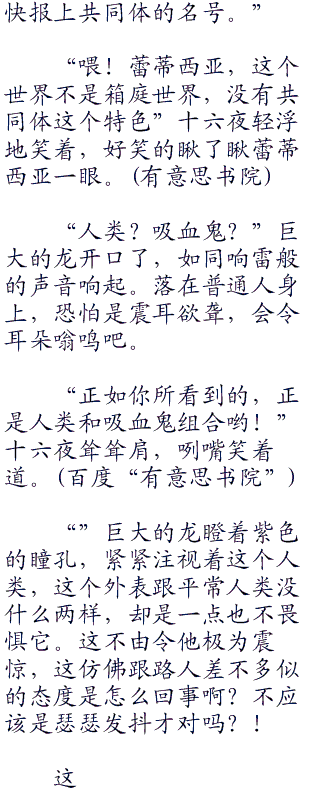 快报上共同体的名号。”
“喂！蕾蒂西亚，这个
世界不是箱庭世界，没有共
同体这个特色”十六夜轻浮
地笑着，好笑的瞅了瞅蕾蒂
西亚一眼。(有意思书院)
“人类？吸血鬼？”巨
大的龙开口了，如同响雷般
的声音响起。落在普通人身
上，恐怕是震耳欲聋，会令
耳朵嗡鸣吧。
“正如你所看到的，正
是人类和吸血鬼组合哟！”
十六夜耸耸肩，咧嘴笑着
道。(百度“有意思书院”)
“”巨大的龙瞪着紫色
的瞳孔，紧紧注视着这个人
类，这个外表跟平常人类没
什么两样，却是一点也不畏
惧它。这不由令他极为震
惊，这仿佛跟路人差不多似
的态度是怎么回事啊？不应
该是瑟瑟发抖才对吗？！
这